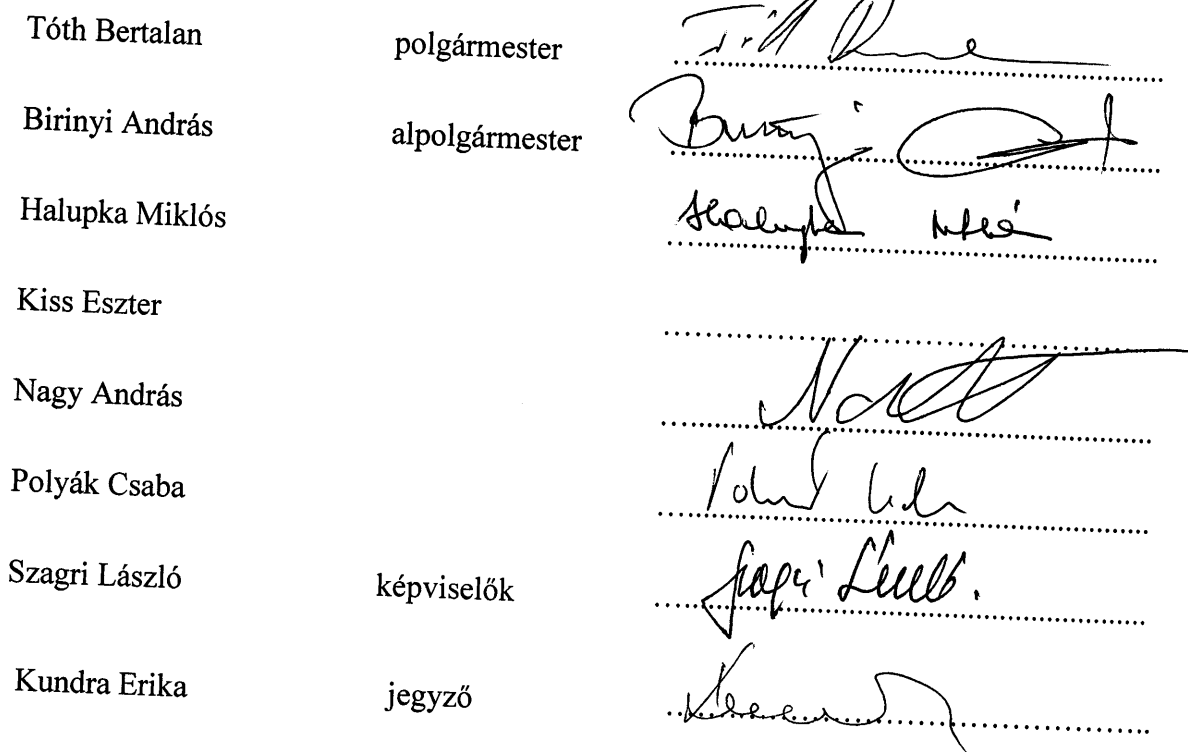 Tóth Bertalan polgármester
Birinyi András alpolgármester
Halupka Miklós
Kiss Eszter
Nagy András
Polyák Csaba
Szagri László képviselők
Kundra Erika jegyző